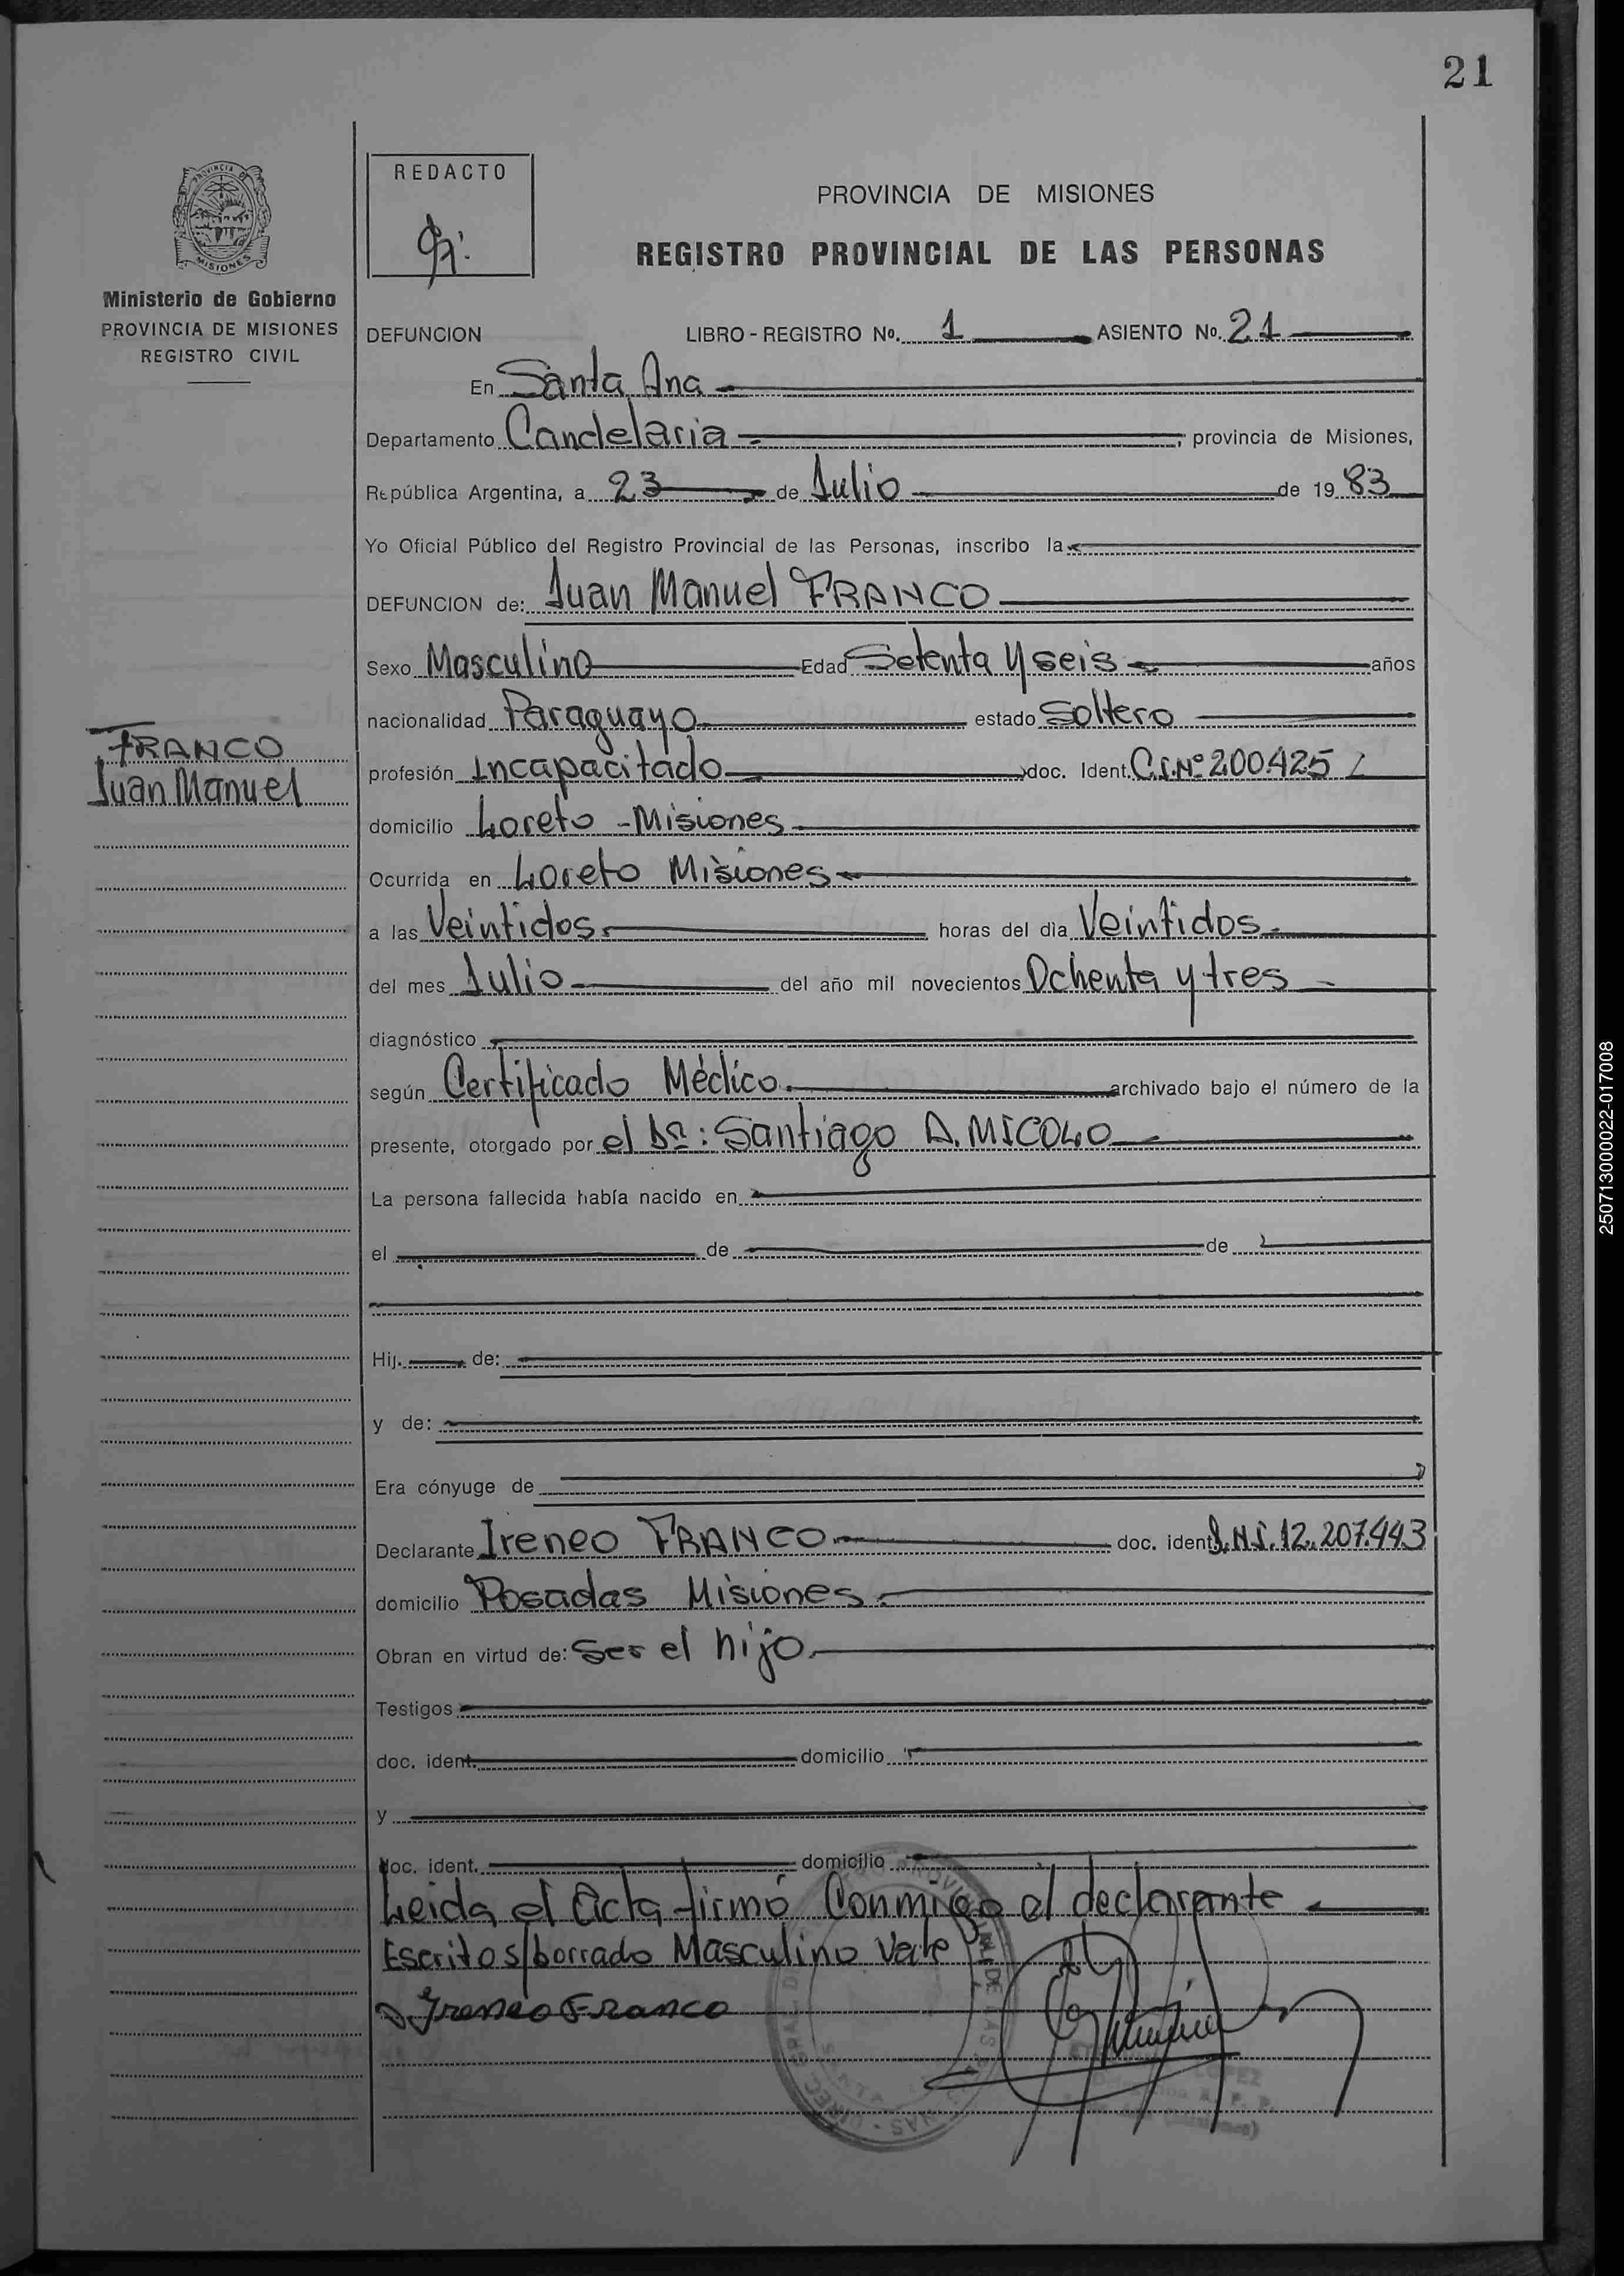 21
REDACTO
PROVINCIA DE MISIONES
REGISTRO PROVINCIAL DE LAS PERSONAS
PROVINCIA DE
MISIONES
Ministerio de Gobierno
PROVINCIA DE MISIONES
REGISTRO CIVIL
DEFUNCION LIBRO - REGISTRO Nº. 1 ASIENTO Nº. 21
En Santa Ana
Departamento Candelaria ; provincia de Misiones,
República Argentina, a 23 de Julio de 19 83
Yo Oficial Público del Registro Provincial de las Personas, inscribo la
DEFUNCION de: Juan Manuel FRANCO
Sexo Masculino Edad Setenta y seis años
nacionalidad Paraguayo estado Soltero
FRANCO
Juan Manuel
profesión Incapacitado doc. Ident. C.I.Nº 200.425
domicilio Loreto - Misiones
Ocurrida en Loreto Misiones
a las Veintidos horas del dia Veintidos
del mes Julio del año mil novecientos Ochenta y tres
diagnóstico
según Certificado Médico. archivado bajo el número de la
presente, otorgado por el Dr: Santiago A. MICOLO
La persona fallecida había nacido en
el de de
Hij. de:
y de:
Era cónyuge de
Declarante Ireneo FRANCO doc. ident D.N.I. 12.207.443
domicilio Posadas Misiones
Obran en virtud de: Ser el hijo.
Testigos
doc. ident. domicilio
y
doc. ident. domicilio
Leida el Acta firmó Conmigo el declarante
Escrito s/borrado Masculino Vale
Ireneo Franco
LOPEZ
2507130000022-017008